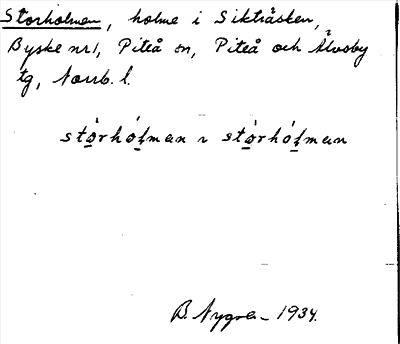 Storholmen, holme i Sikträsken,
Byske nr 1, Piteå sn, Piteå och Älvsby
tg, Norrb. l.
stòrhólman ~ stòrhólman
B. Nygren 1934.